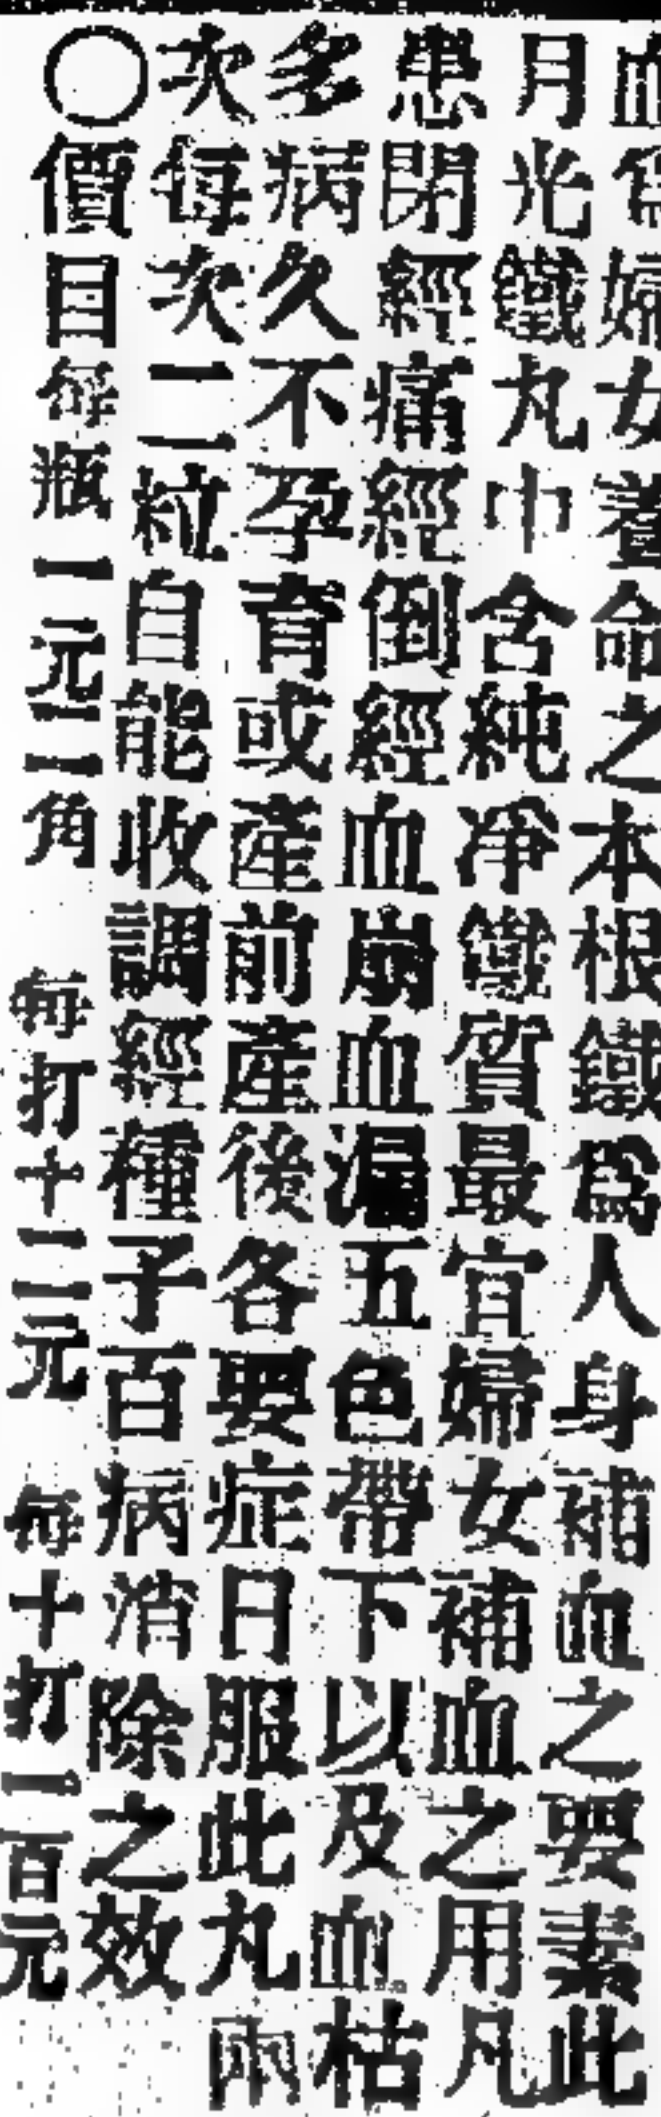 血爲婦女養命之本根鐵爲人身補血之要素此
月光鐵丸巾含純淨鐵質最宜婦女補血之用凡
患閉經痛經倒經血崩血漏五色帶下以及血枯
多病久不孕育或產前產後各要症日服此丸兩
次每次二粒自能收調經種子百病消除之效
〇價目每瓶一元二角 每打十二元 每十打一百元